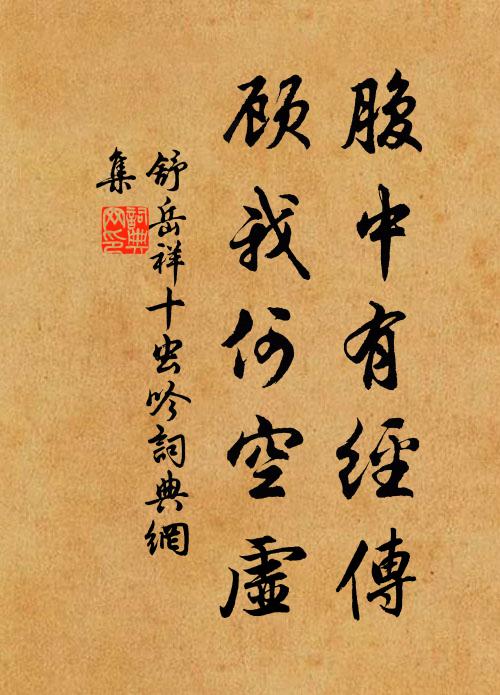 腹中有經傳
顧我何空虛
舒岳祥十虫吟詞典網
集
詞典
网印